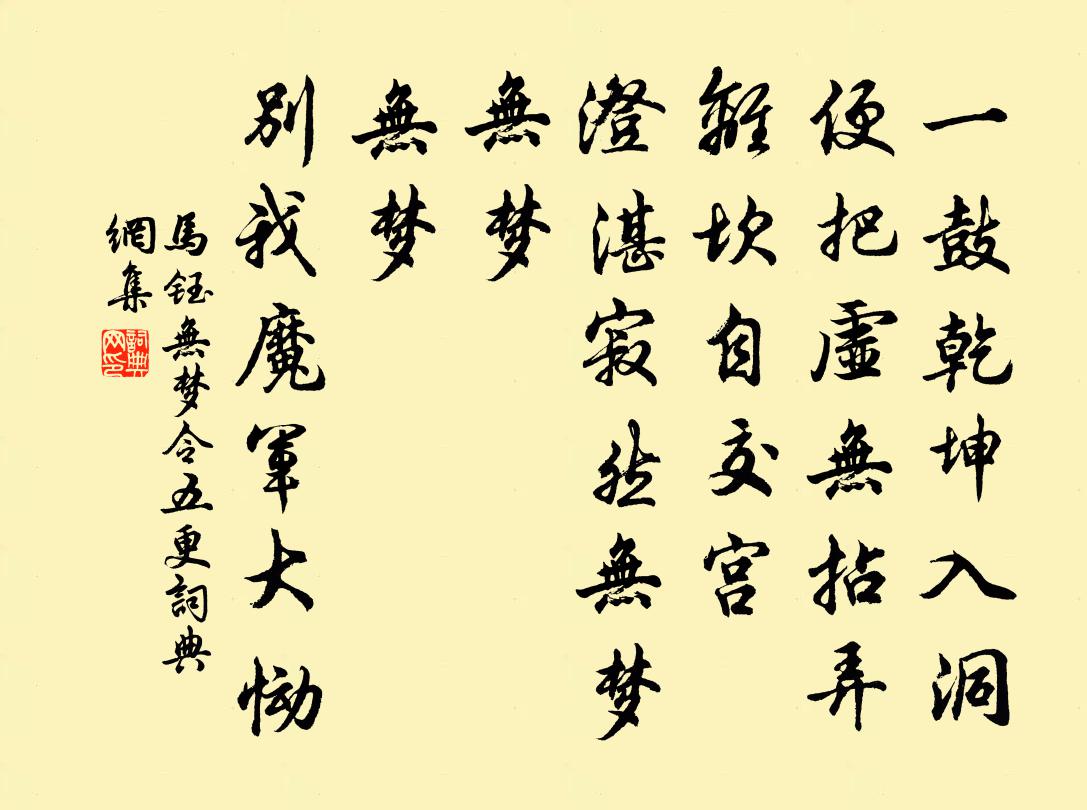 一鼓乾坤入洞
便把虛無拈弄
離坎自交宫
澄湛寂然無梦
無梦
無梦
別我魔軍大恸
馬鈺無梦令五更詞典
網集
詞典
网印